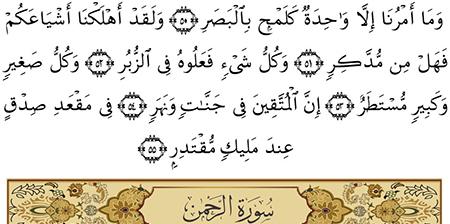 وَمَآ أَمۡرُنَآ إِلَّا وَٰحِدَةٞ كَلَمۡحِۭ بِٱلۡبَصَرِ ٥٠ وَلَقَدۡ أَهۡلَكۡنَآ أَشۡيَاعَكُمۡ
فَهَلۡ مِن مُّدَّكِرٖ ٥١ وَكُلُّ شَيۡءٖ فَعَلُوهُ فِي ٱلزُّبُرِ ٥٢ وَكُلُّ صَغِيرٖ
وَكَبِيرٖ مُّسۡتَطَرٌ ٥٣ إِنَّ ٱلۡمُتَّقِينَ فِي جَنَّٰتٖ وَنَهَرٖ ٥٤ فِي مَقۡعَدِ صِدۡقٍ
عِندَ مَلِيكٖ مُّقۡتَدِرِۭ ٥٥
سُورَةُ الرَّحۡمَٰن